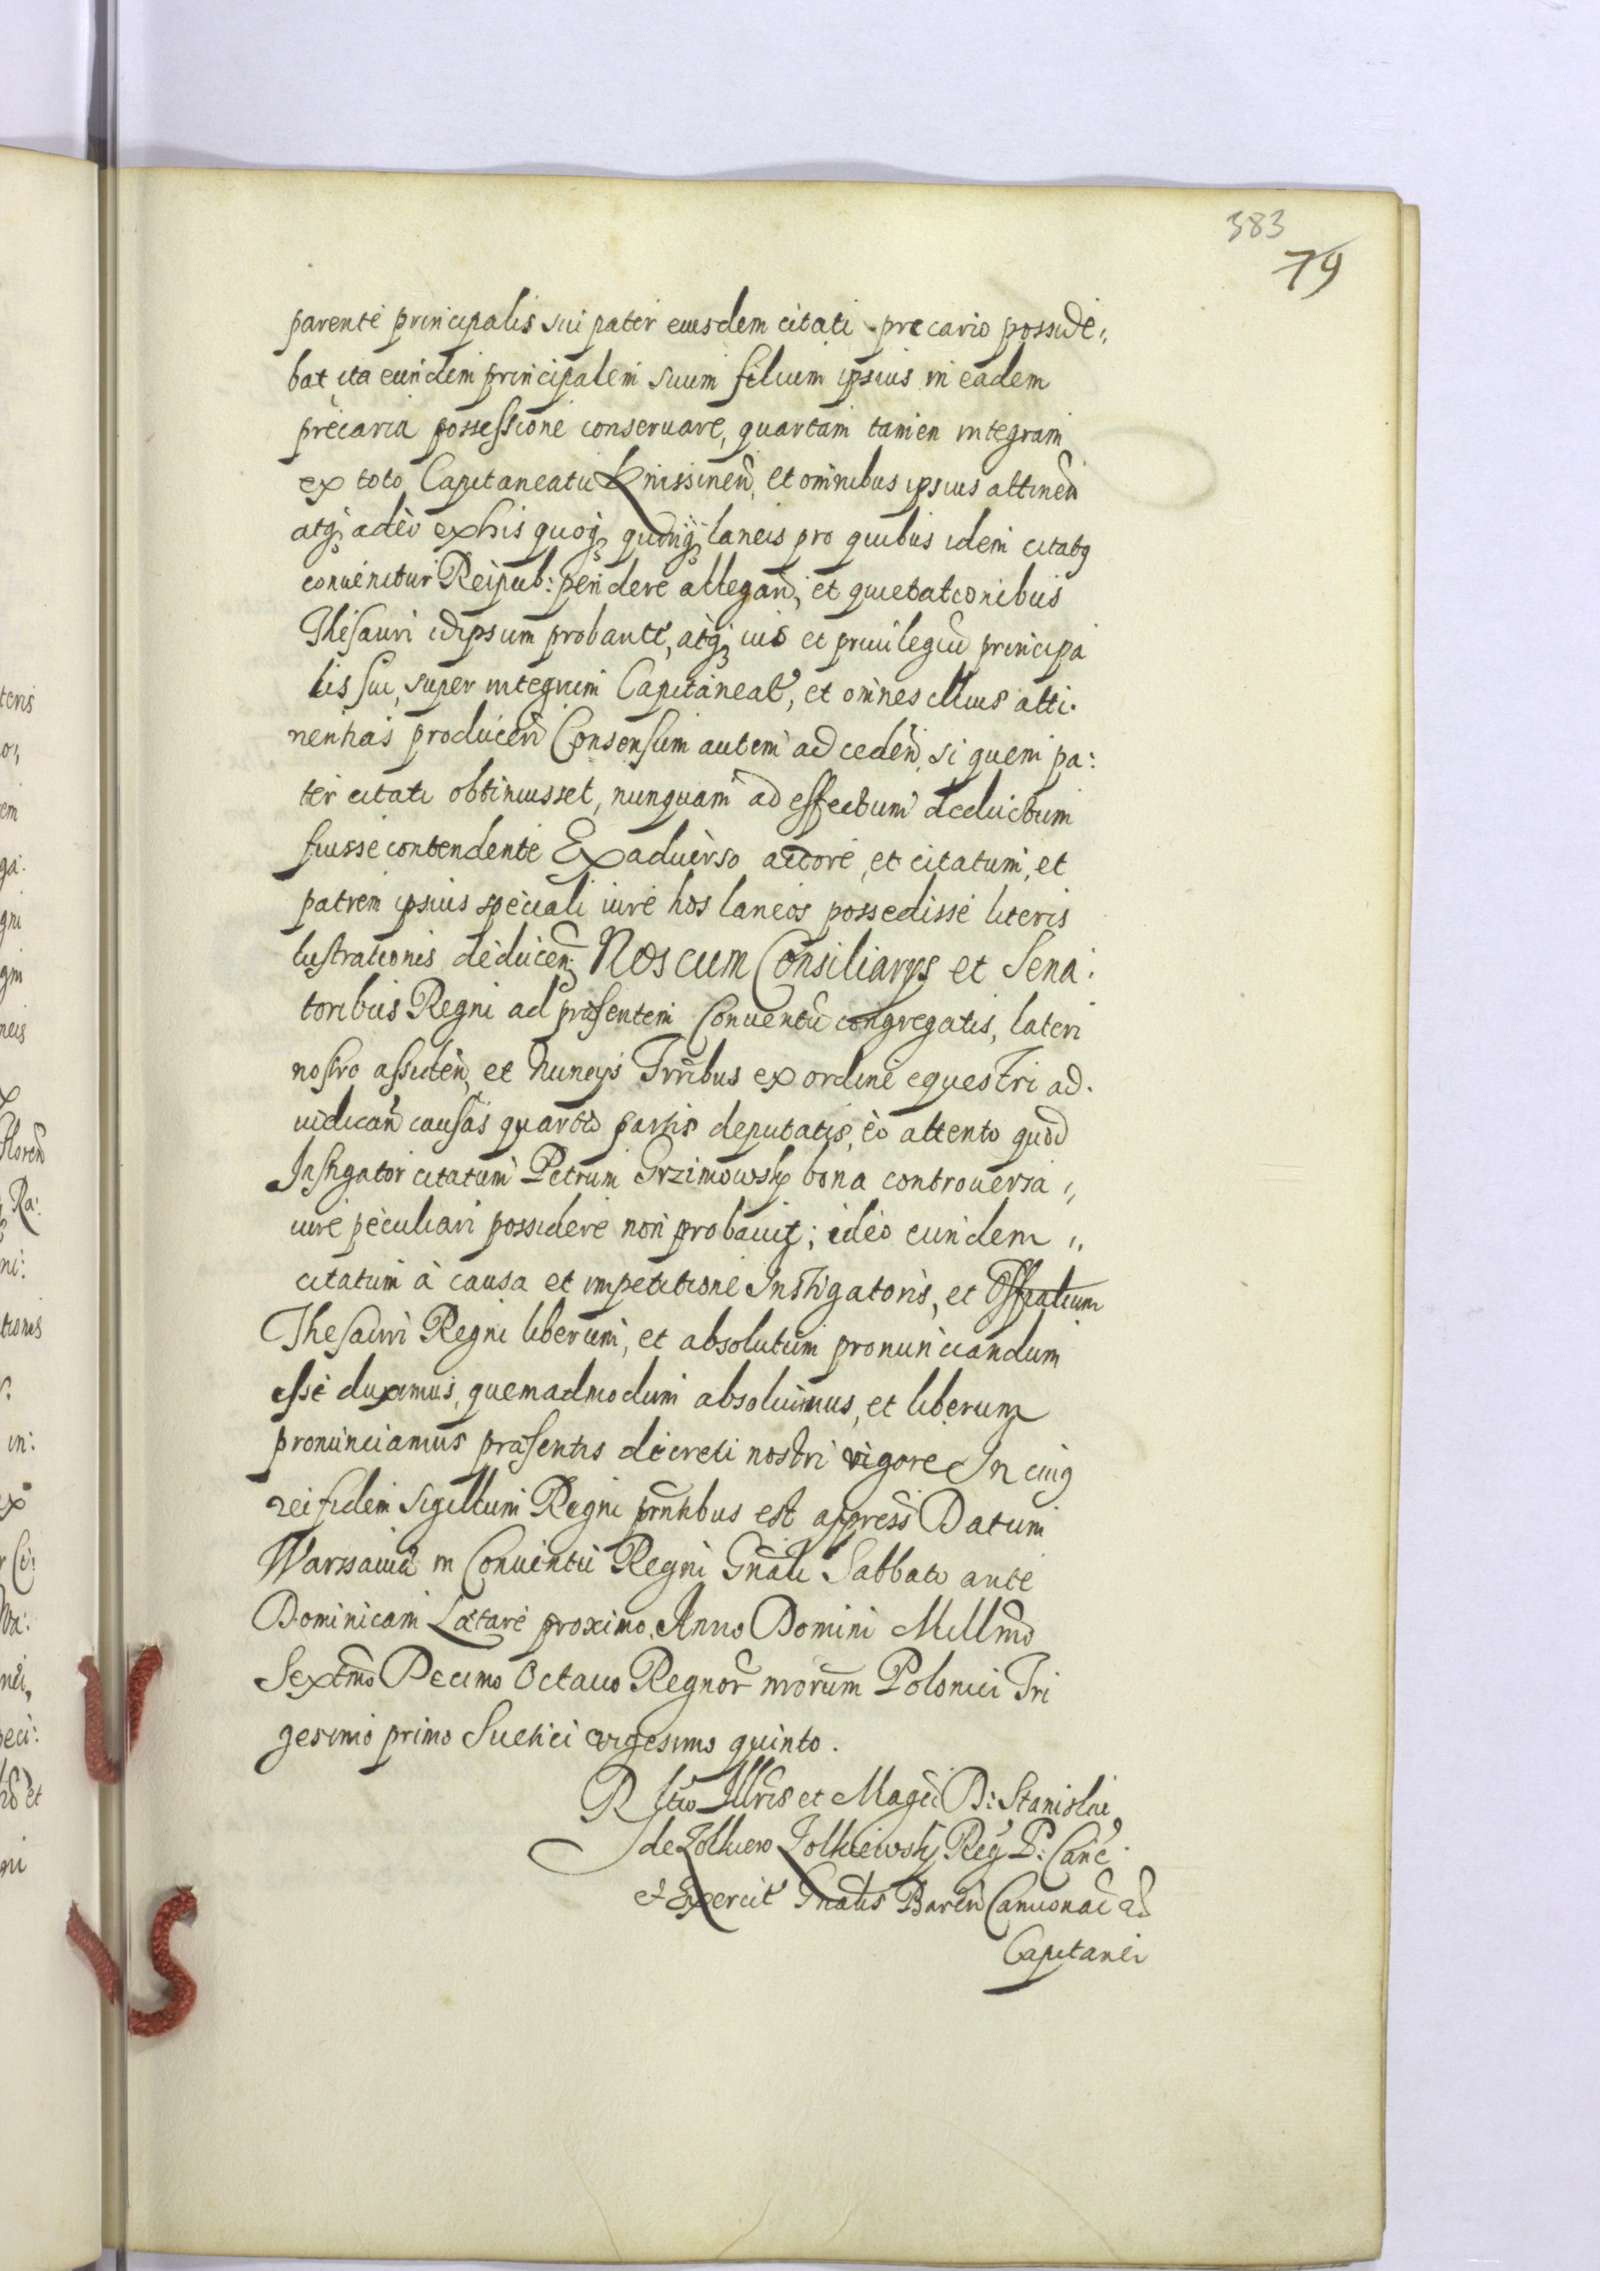 383
79
parente principalis sui pater eiusdem citati precario posside„
bat, ita eundem principalem suum filium ipsius in eadem
precaria possessione conseruare, quartam tamen integram
ex toto Capitaneatu Knissinen̄, et omnibus ipsius attinen̄
atq꙳ adeo ex his quoq꙳ laneis pro quibus idem citatq
conuenitur Reipub: pendere allegan̄, et quietationibus
Thesauri id ipsum probante, atq꙳ ius et priuilegiū principa
lis sui, super integrum Capitaneat', et omnes illius atti.
nentias producen̄ Consensum autem ad ceden̄, si quem pa:
ter citati obtinuisset, nunquam ad effectum deductum
fuisse contendente Ex aduerso actore, et citatum, et
patrem ipsius speciali iure hos laneos possedisse literis
lustrationis deducen̄ Nos cum Consiliarys et Sena:
toribus Regni ad præsentem Conuentū congregatis, lateri
nostro assiden̄, et Nuncys Trr̄ibus ex ordine equestri ad.
iudican̄ causas quartæ partis deputatis, eo attento quod
Instigator citatum Petrum Grzimowsky bona controuersa „
iure peculiari possidere non probauit; ideo eundem „
citatum à causa et impetitione Instigatoris, et Offialium
Thesauri Regni liberum, et absolutum pronunciandum
esse duximus, quemadmodum absoluimus, et liberum
pronunciamus præsentis decreti nostri vigore In cuiq
rei fidem Sigillum Regni prn̄tibus est appress̄ Datum
Warssauiæ in Conuentu Regni Gn̄ali Sabbato ante
Dominicam Lætare proximo Anno Domini Mill̄mo
Sext̄mo Decimo Octauo Regnor̄ nr̄orum Polonici Tri
gesimo primo Suetici vigesimo quinto.
R̄ltio Illr̄is et Mag̃ci D: Stanislai
de Zolkiew Zolkiewsky Reg̃ P: Canc̃
et Exercit' Gn̄alis Baren̄ Camionac̃ æ꙳
Capitanei